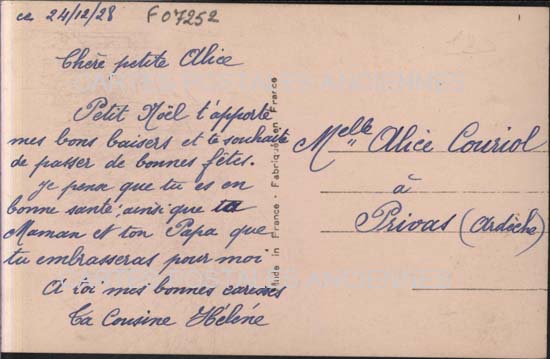 ce 24/12/28
F07252
Cherè petite Alice
Petit Noël t'apporte
mes bons baisers et te souhaite
de passer de bonnes fêtes.
Je pense que tu es en
bonne santé, ainsi que ta
Maman et ton Papa que
tu embrasseras pour moi
A toi mes bonnes caresses
Ta Cousine Hélène
Made in France - Fabriqué en France
Melle Alice Couriol
à
Privas (Ardèche)